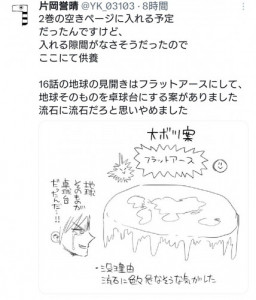 片岡誉晴 @YK_03103・8時間
2巻の空きページに入れる予定
だったんですけど、
入れる隙間がなさそうだったので
ここにて供養
16話の地球の見開きはフラットアースにして、
地球そのものを卓球台にする案がありました
流石に流石だろと思いやめました
大ボツ案
フラットアース
地球
そのものが
卓球台
だったんだ…!!
・没理由
流石に色々危なそうな気がした